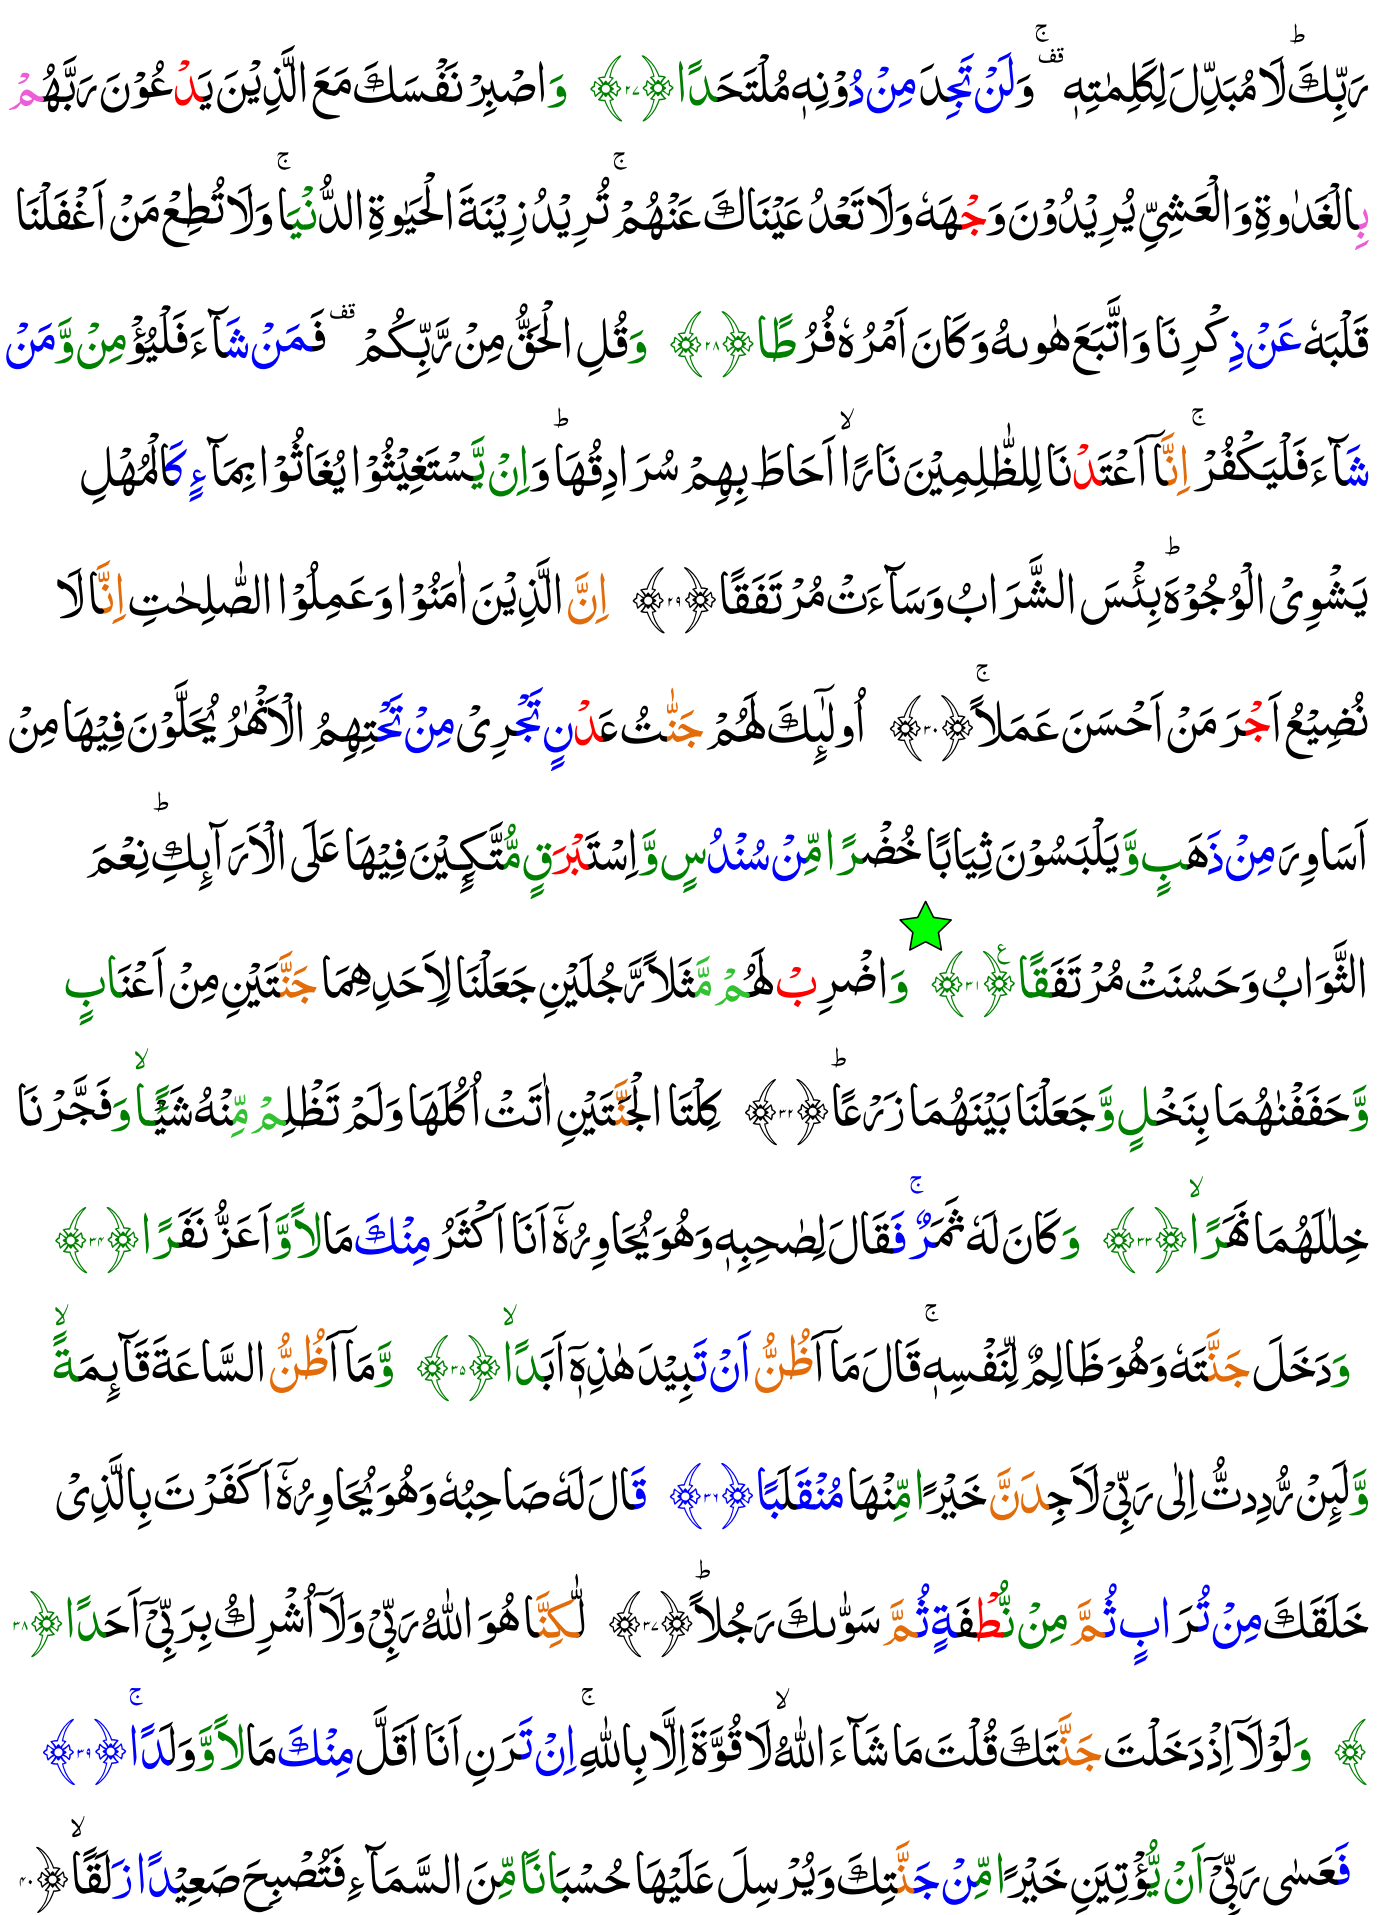 رَبِّكَ ؕ لَا مُبَدِّلَ لِكَلِمٰتِهٖ ۚ قف وَلَنْ تَجِدَ مِنْ دُوْنِهٖ مُلْتَحَدًا ﴿۲۷﴾ وَاصْبِرْ نَفْسَكَ مَعَ الَّذِيْنَ يَدْعُوْنَ رَبَّهُمْ
بِالْغَدٰوةِ وَالْعَشِيِّ يُرِيْدُوْنَ وَجْهَهٗ وَلَا تَعْدُ عَيْنَاكَ عَنْهُمْ ۚ تُرِيْدُ زِيْنَةَ الْحَيٰوةِ الدُّنْيَا ۚ وَلَا تُطِعْ مَنْ اَغْفَلْنَا
قَلْبَهٗ عَنْ ذِكْرِنَا وَاتَّبَعَ هَوٰىهُ وَكَانَ اَمْرُهٗ فُرُطًا ﴿۲۸﴾ وَقُلِ الْحَقُّ مِنْ رَّبِّكُمْ قف فَمَنْ شَآءَ فَلْيُؤْمِنْ وَّمَنْ
شَآءَ فَلْيَكْفُرْ ۚ اِنَّاۤ اَعْتَدْنَا لِلظّٰلِمِيْنَ نَارًا ۙ اَحَاطَ بِهِمْ سُرَادِقُهَا ؕ وَاِنْ يَّسْتَغِيْثُوْا يُغَاثُوْا بِمَآءٍ كَالْمُهْلِ
يَشْوِى الْوُجُوْهَ ؕ بِئْسَ الشَّرَابُ وَسَآءَتْ مُرْتَفَقًا ﴿۲۹﴾ اِنَّ الَّذِيْنَ اٰمَنُوْا وَعَمِلُوا الصّٰلِحٰتِ اِنَّا لَا
نُضِيْعُ اَجْرَ مَنْ اَحْسَنَ عَمَلاً ۚ ﴿۳۰﴾ اُولٰٓئِكَ لَهُمْ جَنّٰتُ عَدْنٍ تَجْرِىْ مِنْ تَحْتِهِمُ الْاَنْهٰرُ يُحَلَّوْنَ فِيْهَا مِنْ
اَسَاوِرَ مِنْ ذَهَبٍ وَّيَلْبَسُوْنَ ثِيَابًا خُضْرًا مِّنْ سُنْدُسٍ وَّاِسْتَبْرَقٍ مُّتَّكِـِٕيْنَ فِيْهَا عَلَى الْاَرَآئِكِ ؕ نِعْمَ
الثَّوَابُ وَحَسُنَتْ مُرْتَفَقًا ﴿۳۱﴾ ع وَاضْرِبْ لَهُمْ مَّثَلاً رَّجُلَيْنِ جَعَلْنَا لِاَحَدِهِمَا جَنَّتَيْنِ مِنْ اَعْنَابٍ
وَّحَفَفْنٰهُمَا بِنَخْلٍ وَّجَعَلْنَا بَيْنَهُمَا زَرْعًا ؕ ﴿۳۲﴾ كِلْتَا الْجَنَّتَيْنِ اٰتَتْ اُكُلَهَا وَلَمْ تَظْلِمْ مِّنْهُ شَيْـًٔا ۙ وَفَجَّرْنَا
خِلٰلَهُمَا نَهَرًا ۙ ﴿۳۳﴾ وَكَانَ لَهٗ ثَمَرٌ ۚ فَقَالَ لِصٰحِبِهٖ وَهُوَ يُحَاوِرُهٗۤ اَنَا اَكْثَرُ مِنْكَ مَالاً وَّاَعَزُّ نَفَرًا ﴿۳۴﴾
وَدَخَلَ جَنَّتَهٗ وَهُوَ ظَالِمٌ لِّنَفْسِهٖ ۚ قَالَ مَاۤ اَظُنُّ اَنْ تَبِيْدَ هٰذِهٖۤ اَبَدًا ۙ ﴿۳۵﴾ وَّمَاۤ اَظُنُّ السَّاعَةَ قَآئِمَةً ۙ
وَّلَئِنْ رُّدِدتُّ اِلٰى رَبِّىْ لَاَجِدَنَّ خَيْرًا مِّنْهَا مُنْقَلَبًا ﴿۳۶﴾ قَالَ لَهٗ صَاحِبُهٗ وَهُوَ يُحَاوِرُهٗۤ اَكَفَرْتَ بِالَّذِىْ
خَلَقَكَ مِنْ تُرَابٍ ثُمَّ مِنْ نُّطْفَةٍ ثُمَّ سَوّٰىكَ رَجُلاً ؕ ﴿۳۷﴾ لّٰكِنَّا هُوَ اللّٰهُ رَبِّىْ وَلَاۤ اُشْرِكُ بِرَبِّىْۤ اَحَدًا ﴿۳۸
﴾ وَلَوْلَاۤ اِذْ دَخَلْتَ جَنَّتَكَ قُلْتَ مَا شَآءَ اللّٰهُ ۙ لَا قُوَّةَ اِلَّا بِاللّٰهِ ۚ اِنْ تَرَنِ اَنَا اَقَلَّ مِنْكَ مَالاً وَّوَلَدًا ۚ ﴿۳۹﴾
فَعَسٰى رَبِّىْۤ اَنْ يُّؤْتِيَنِ خَيْرًا مِّنْ جَنَّتِكَ وَيُرْسِلَ عَلَيْهَا حُسْبَانًا مِّنَ السَّمَآءِ فَتُصْبِحَ صَعِيْدًا زَلَقًا ۙ ﴿۴۰